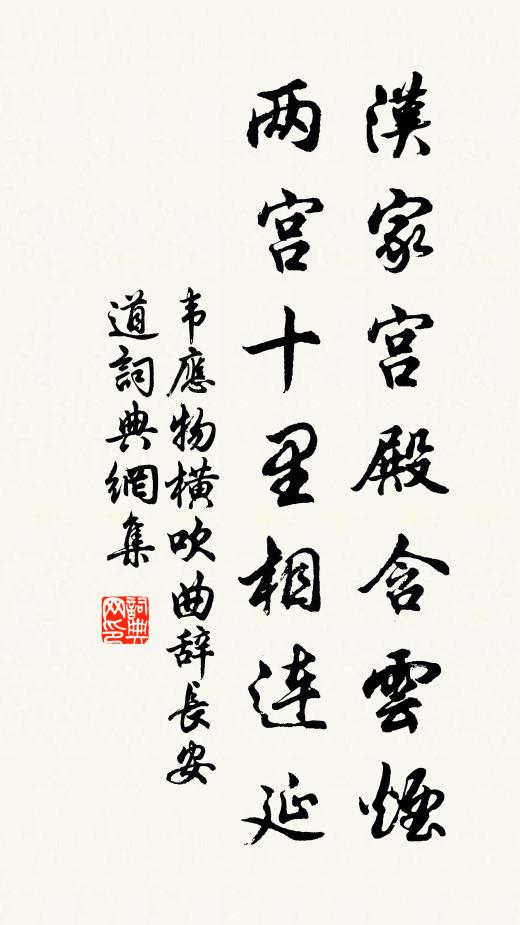 漢家宫殿含雲煙
两宫十里相連延
韦應物橫吹曲辞長安
道詞典網集
詞典
网印